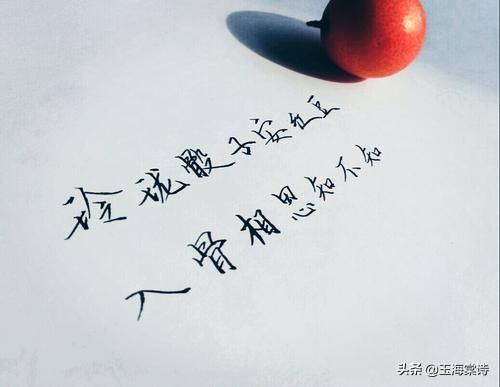 玲珑骰子安红豆
入骨相思知不知
头条 @玉海棠诗